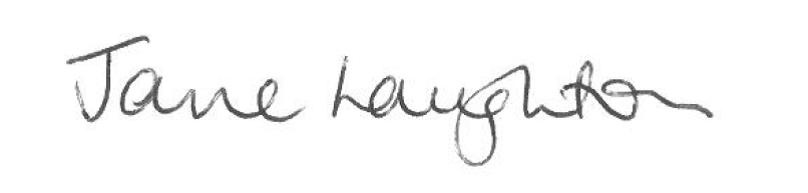 Jane Laughton